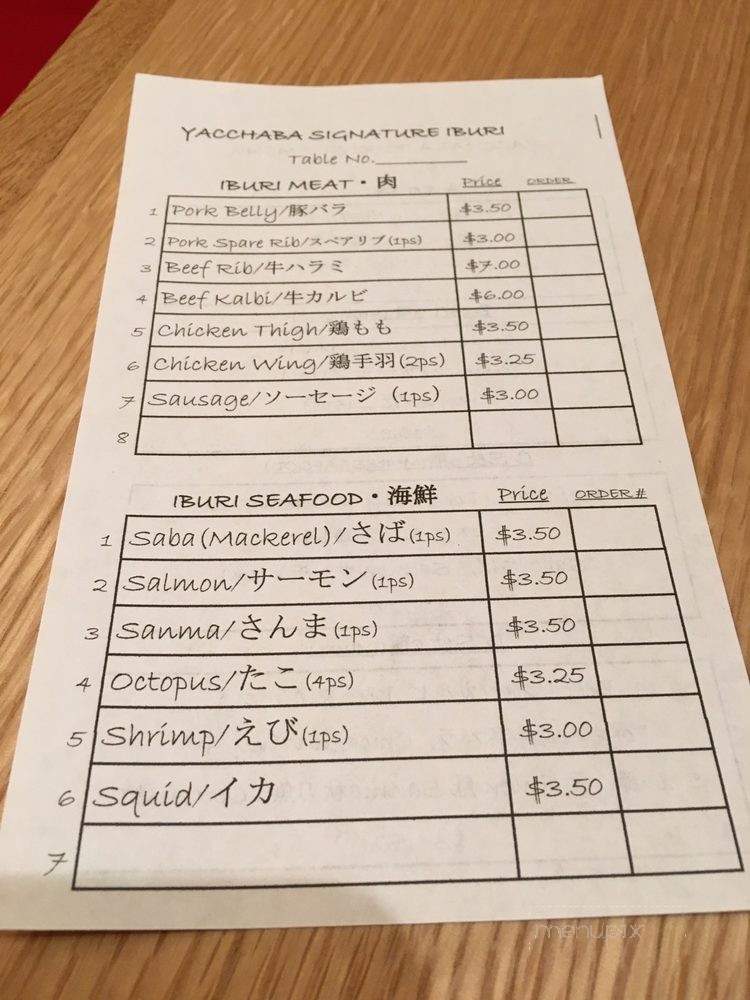 YACCHABA SIGNATURE IBURI
Table No.________
IBURI MEAT・肉 Price ORDER
1 Pork Belly/豚バラ $3.50
2 Pork Spare Rib/スペアリブ(1ps) $3.00
3 Beef Rib/牛ハラミ $7.00
4 Beef Kalbi/牛カルビ $6.00
5 Chicken Thigh/鶏もも $3.50
6 Chicken Wing/鶏手羽(2ps) $3.25
7 Sausage/ソーセージ (1ps) $3.00
8
IBURI SEAFOOD・海鮮 Price ORDER #
1 Saba(Mackerel)/さば(1ps) $3.50
2 Salmon/サーモン(1ps) $3.50
3 Sanma/さんま(1ps) $3.50
4 Octopus/たこ(4ps) $3.25
5 Shrimp/えび(1ps) $3.00
6 Squid/イカ $3.50
7
menupix